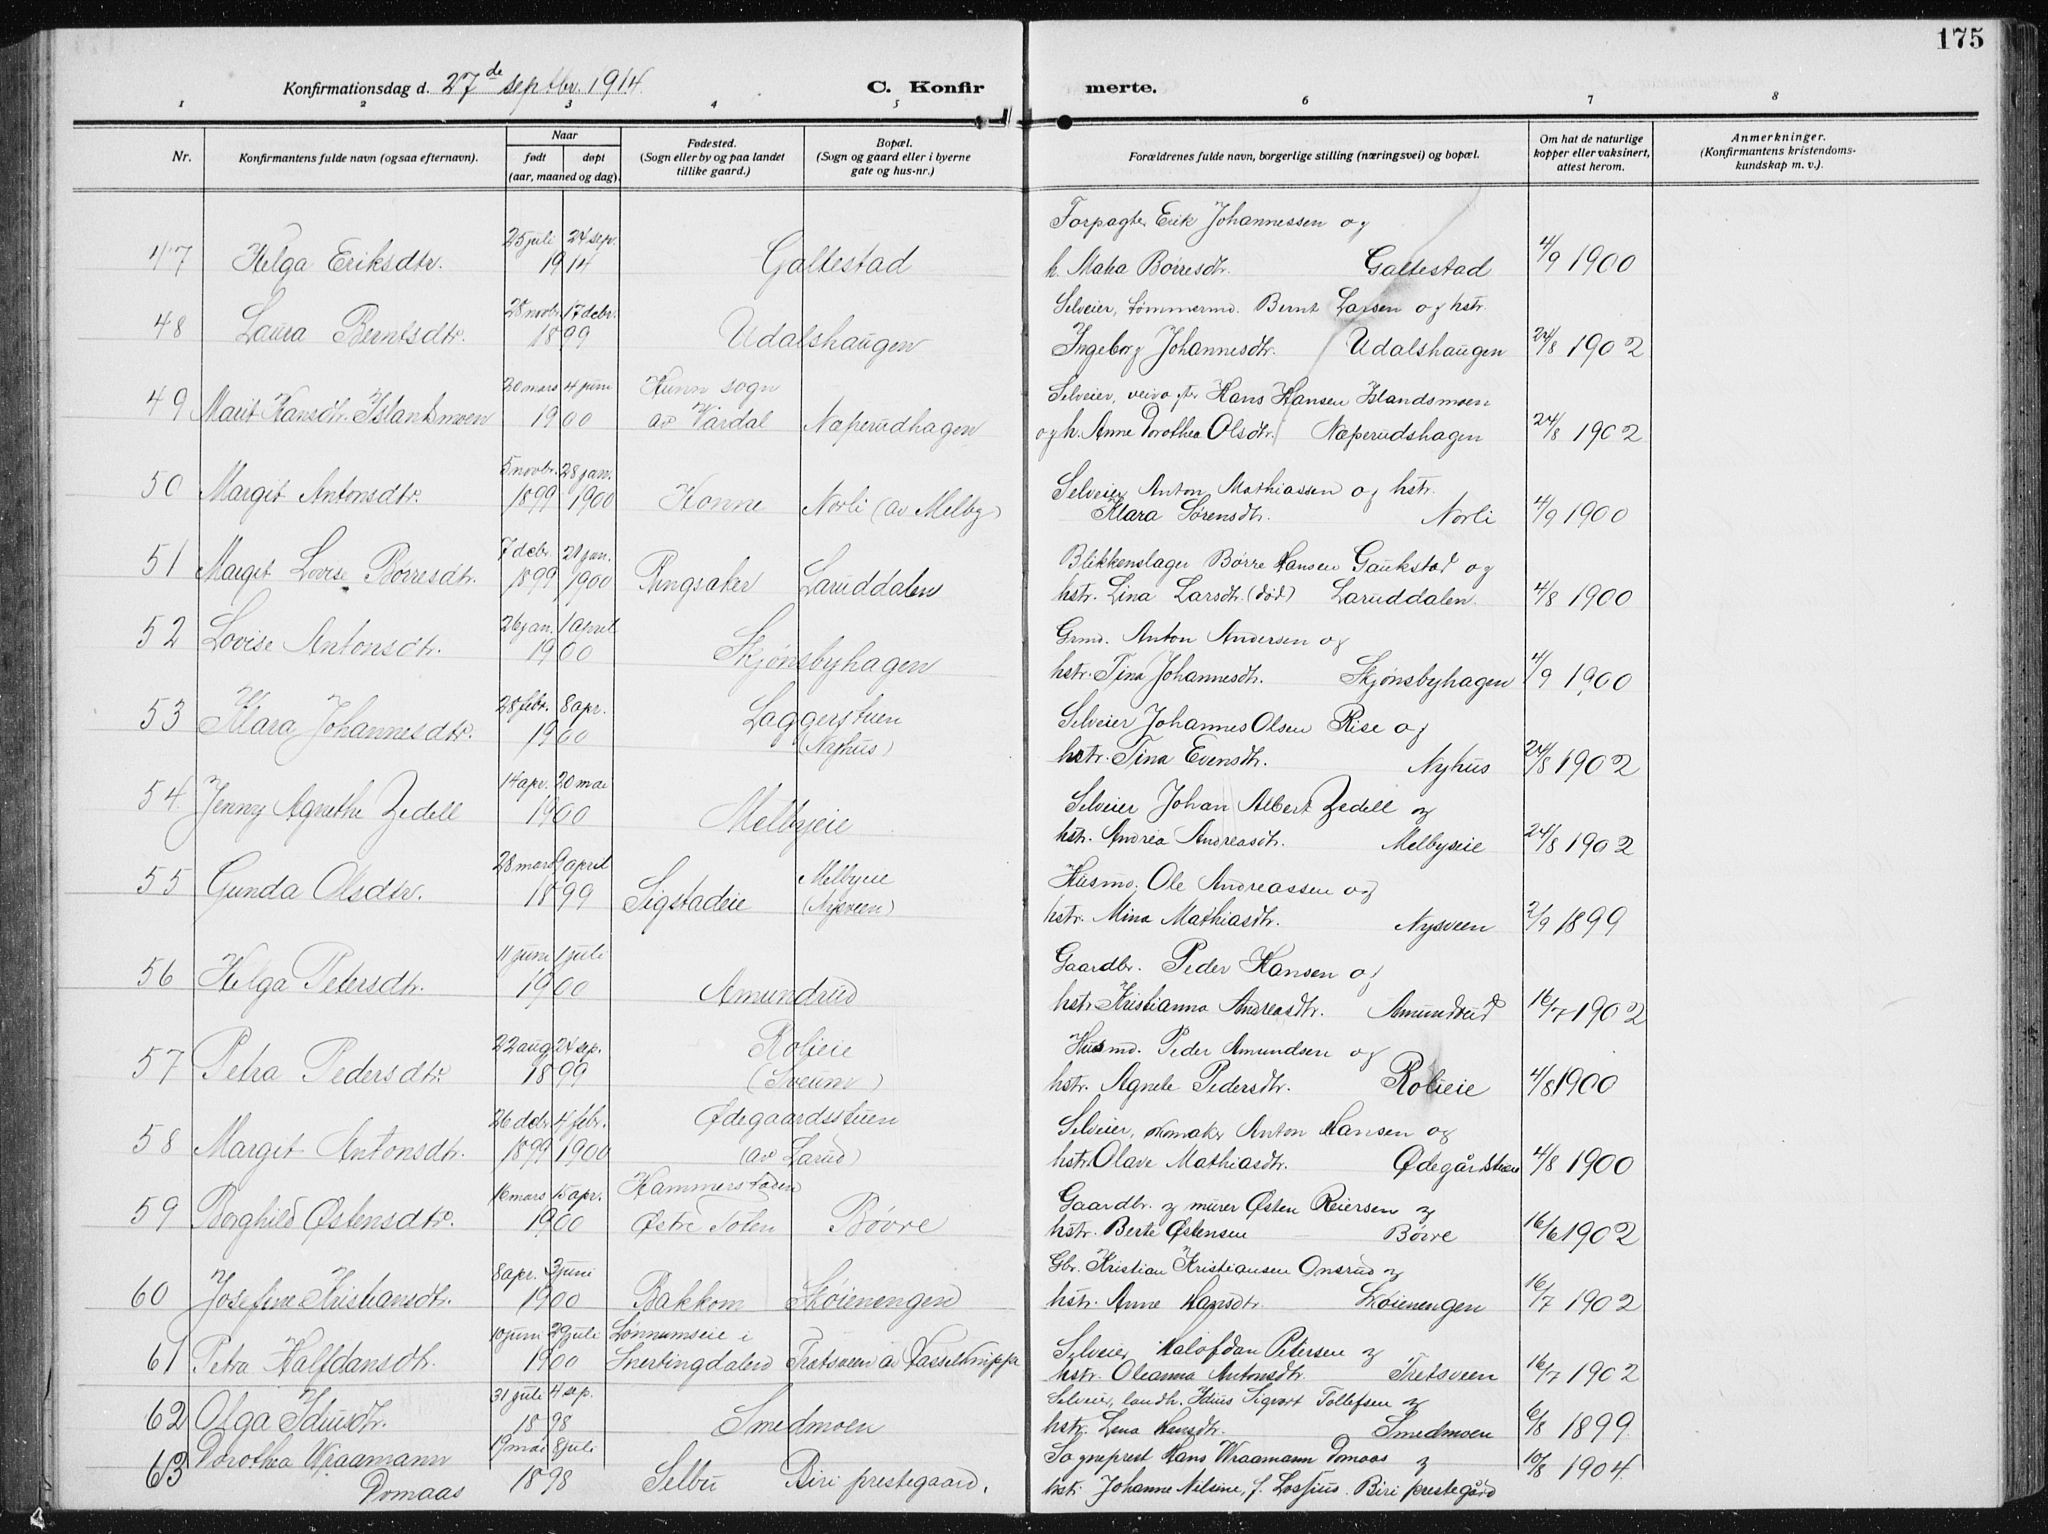 175
Konfirmationsdag d. 27de septbr. 1914.
C. Konfirmerte.
1 2 3 4 5 6 7 8
Nr.
Konfirmantens fulde navn (ogsaa efternavn).
Naar
født døpt
(aar, maaned og dag).
Fødested.
(Sogn eller by og paa landet
tillike gaard.)
Bopæl.
(Sogn og gaard eller i byerne
gate og hus-nr.)
Forældrenes fulde navn, borgerlige stilling (næringsvei) og bopæl.
Om hat de naturlige
kopper eller vaksinert,
attest herom.
Anmerkninger.
(Konfirmantens kristendoms-
kundskap m. v.).
25 juli 24 sep. Forpagter Erik Johannessen og
47 Helga Eriksdtr. 1914 Galtestad h. Børresdtr. Galtestad 4/9 1900
28 novbr. 17 debr. Selveier, tømmermd. Bernt Larsen og hstr.
48 Laura Berntsdtr. 1899 Udalshaugen Ingeborg Johannesdtr. Udalshaugen 24/8 1902
20 mars 4 juni Hunn sogn Selveier, Hans Hansen Islandsmoen
49 Marit Hansdtr. Islandsmoen 1900 av Vardal Næperudhagen og h. Anne Dorothea Olsdtr. Næperudshagen 24/8 1902
5 novbr. 28 jan. Selveier Anton Mathiassen og hstr.
50 Margit Antonsdtr. 1899 1900 Honne Norli (av Melby) Klara Sørensdtr. Norli 4/9 1900
7 debr. 21 jan. Blikkenslager Børre Hansen Gaukstad og
51 Margit Lovise Børresdtr. 1899 1900 Ringsaker Laruddalen hstr. Lina Larsdtr. (død) Laruddalen. 4/8 1900
26 jan. 1 april Grmd. Anton Andersen og
52 Lovise Antonsdtr. 1900 Skjønsbyhagen hstr. Tina Johannesdtr. Skjønsbyhagen 4/9 1900
28 febr. 8 apr. Laggerstuen Selveier Johannes Olsen Rise og
53 Klara Johannesdtr. 1900 (Nyhus) hstr. Tina Evensdtr. Nyhus 24/8 1902
14 apr. 20 mai Selveier Johan Albert Zedell og
54 Jenny Agnethe Zedell 1900 Melbyeie hstr. Andrea Andreasdtr. Melbyeie 24/8 1902
28 mars 9 april Melbyeie Husmd. Ole Andreassen og
55 Gunda Olsdtr. 1899 Sigstadeie (Nysveen) hstr. Mina Mathiasdtr. Nysveen 2/9 1899
11 juni 1 juli Gaardbr. Peder Hansen og
56 Helga Petersdtr. 1900 Amundrud hstr. Kristianna Andreasdtr. Amundrud 16/7 1902
22 aug. 24 sep. Rolieie Husmd. Peder Amundsen og
57 Petra Pedersdtr. 1899 (Sveum) hstr. Agnete Pedersdtr. Rolieie 4/8 1900
26 debr. 4 febr. Ødegaardsstuen Selveier, skomaker Anton Hansen og
58 Margit Antonsdtr. 1899 1900 (av Larud) hstr. Olave Mathiasdtr. Ødegårdstuen 4/8 1900
16 mars 15 apr. Hammerstaden Gaardbr. og murer Østen Reiersen og
59 Borghild Østensdtr. 1900 Østre Toten Børre hstr. Berte Østensen Børre 16/6 1902
8 apr. 3 juni Gbr. Kristian Kristiansen Onsrud og
60 Josefine Kristiansdtr. 1900 Bakkom Skøienengen hstr. Anne Hansdtr. Skøienengen 16/7 1902
10 juni 29 juli Lønnumseie i Selveier Halvdan Petersen og
61 Petra Halfdansdtr. 1900 Snertingdalen Tretsveen hstr. Oleanna Antonsdtr. Tretsveen 16/7 1902
31 juli 4 sep. Selveier, landh. Idius Sigvart Tollefsen og
62 Olga Idiusdtr. 1898 Smedmoen hstr. Lena Hansdtr. Smedmoen 6/8 1899
19 mai 8 juli Sogneprest Hans Wraamann Domaas og
63 Dorothea Wraamann Domaas 1898 Selbu Biri prestegaard. hstr. Johanne Nilsine, f. Lossius. Biri prestegård 10/8 1904